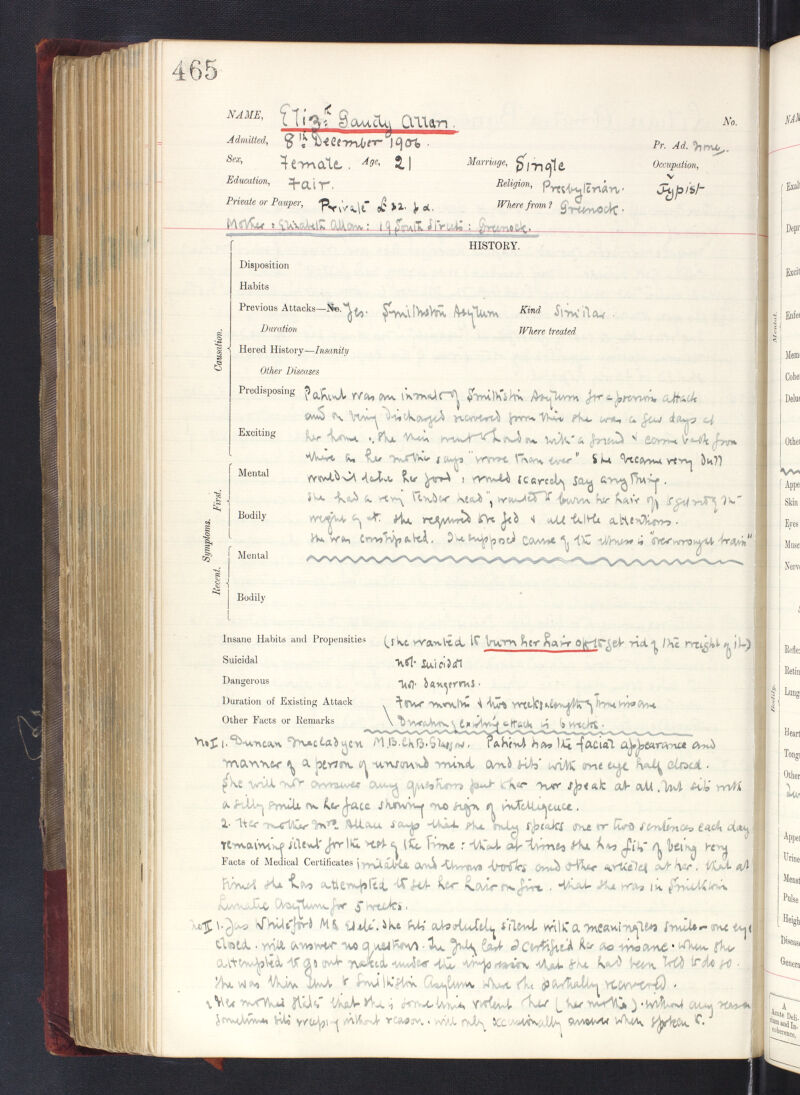 465
NAME, Eliz.th Gaudy Allan. No.
Admitted, 8th December 1906. Pr. Ad. None.
Sex, Female. Age, 21 Marriage, Single Occupation,
Education, Fair. Religion, Presbyterian. Typist
Private or Pauper, Private £32. p a. Where from? Greenock.
Mother: Elizabeth Allan: 19 South Street: Greenock.
HISTORY.
Disposition
Habits
Previous Attacks—No. Yes. Smithston Asylum Kind Similar.
Duration Where treated
Hered History—Insanity
Other Diseases
Causation.
Predisposing Patient was an inmate of Smithston Asylum for a previous attack
and on being discharged recovered from this she was a few days at
Exciting her home. She then went to London with a friend & came back from
there as her mother says "worse than ever" She became very dull
Mental wouldn't take her food, would scarcely say anything.
She had a very "tender head", wanted to burn her hair off to get rid of the
Bodily weight of it. She required to be fed & all little attentions.
She was constipated. The supposed cause of the illness is "overwrought brain"
Mental
Bodily
Symptoms.
First.
Recent.
Insane Habits and Propensities (she wanted to burn her hair off to get rid of the weight of it)
Suicidal not suicidal
Dangerous not dangerous.
Duration of Existing Attack Four months & two weeks length of time insane
Other Facts or Remarks Duration of existing attack is 6 weeks.
No I 1. Duncan MacFadyen M.B. Ch.B. Glasgow. Patient has the facial appearance and
manner of a person of unsound mind and sits with one eye half closed.
She will not answer any questions put to her nor speak at all, but sits with
a silly smile on her face showing no sign of intelligence.
2. Her mother Mrs Allan says that she only speaks one or two sentences each day
remaining silent for the rest of the time: that at times she has fits of being very
Facts of Medical Certificates irritable and throws books and other articles at her. that at
times she has attempted to set her hair on fire. that she was in Smithston
Lunatic Asylum for 5 weeks.
No II 1. Jas Whiteford M.D. She sits absolutely silent with a meaningless smile & one eye
closed. will answer no questions. In July last I certified her as insane. when she
attempted to go out naked under the impression that she had been told to do so.
She was then sent to Smithston Asylum where she partially recovered.
2. Her mother states that she is sometimes violent to her (her mother). without any reason
sometimes sits weeping without reason. will only occasionally answer when spoken to.